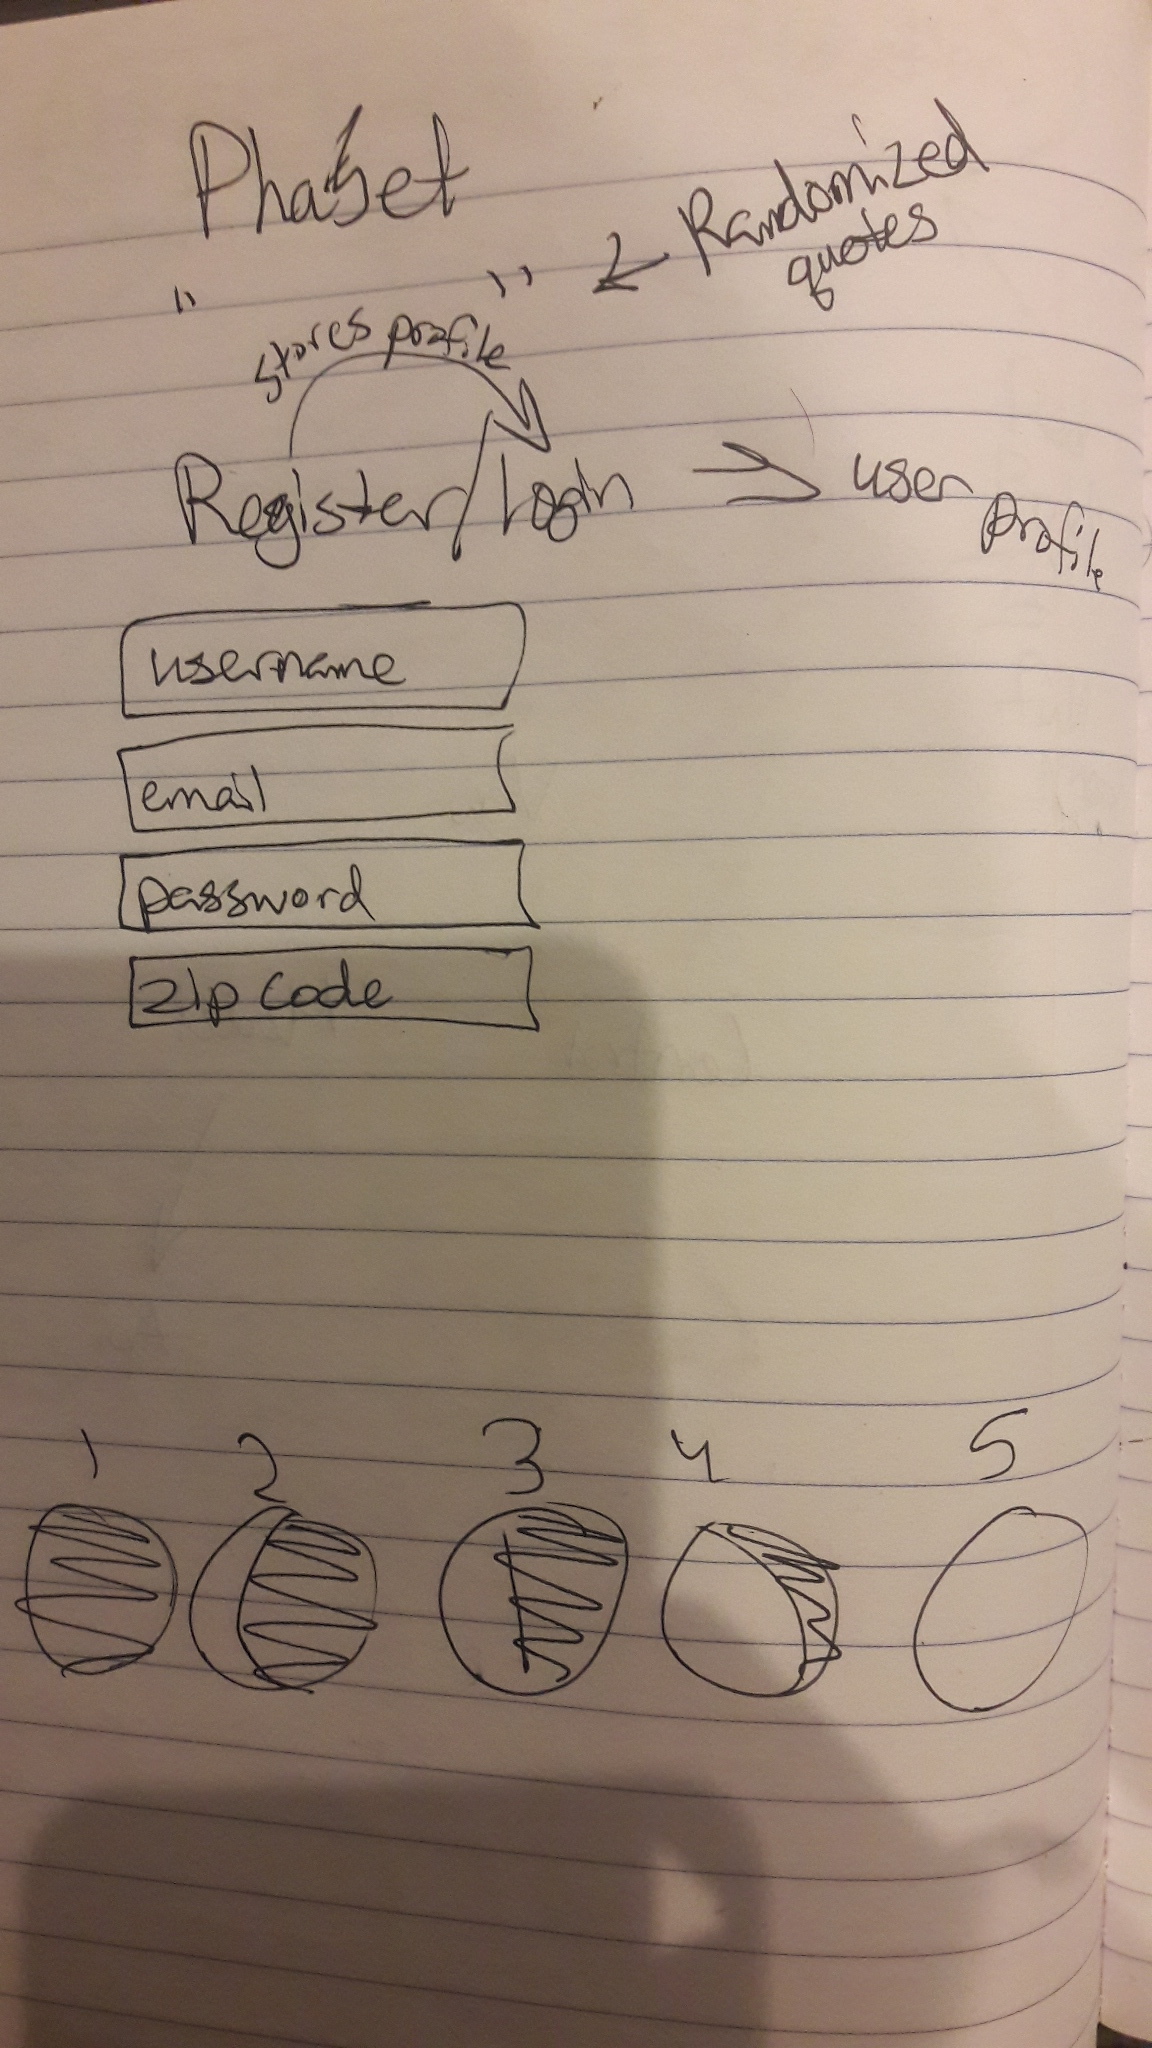 Phaset
" "
Randomized
quotes
stores profile
Register/Login
user
profile
username
email
password
zip code
1 2 3 4 5